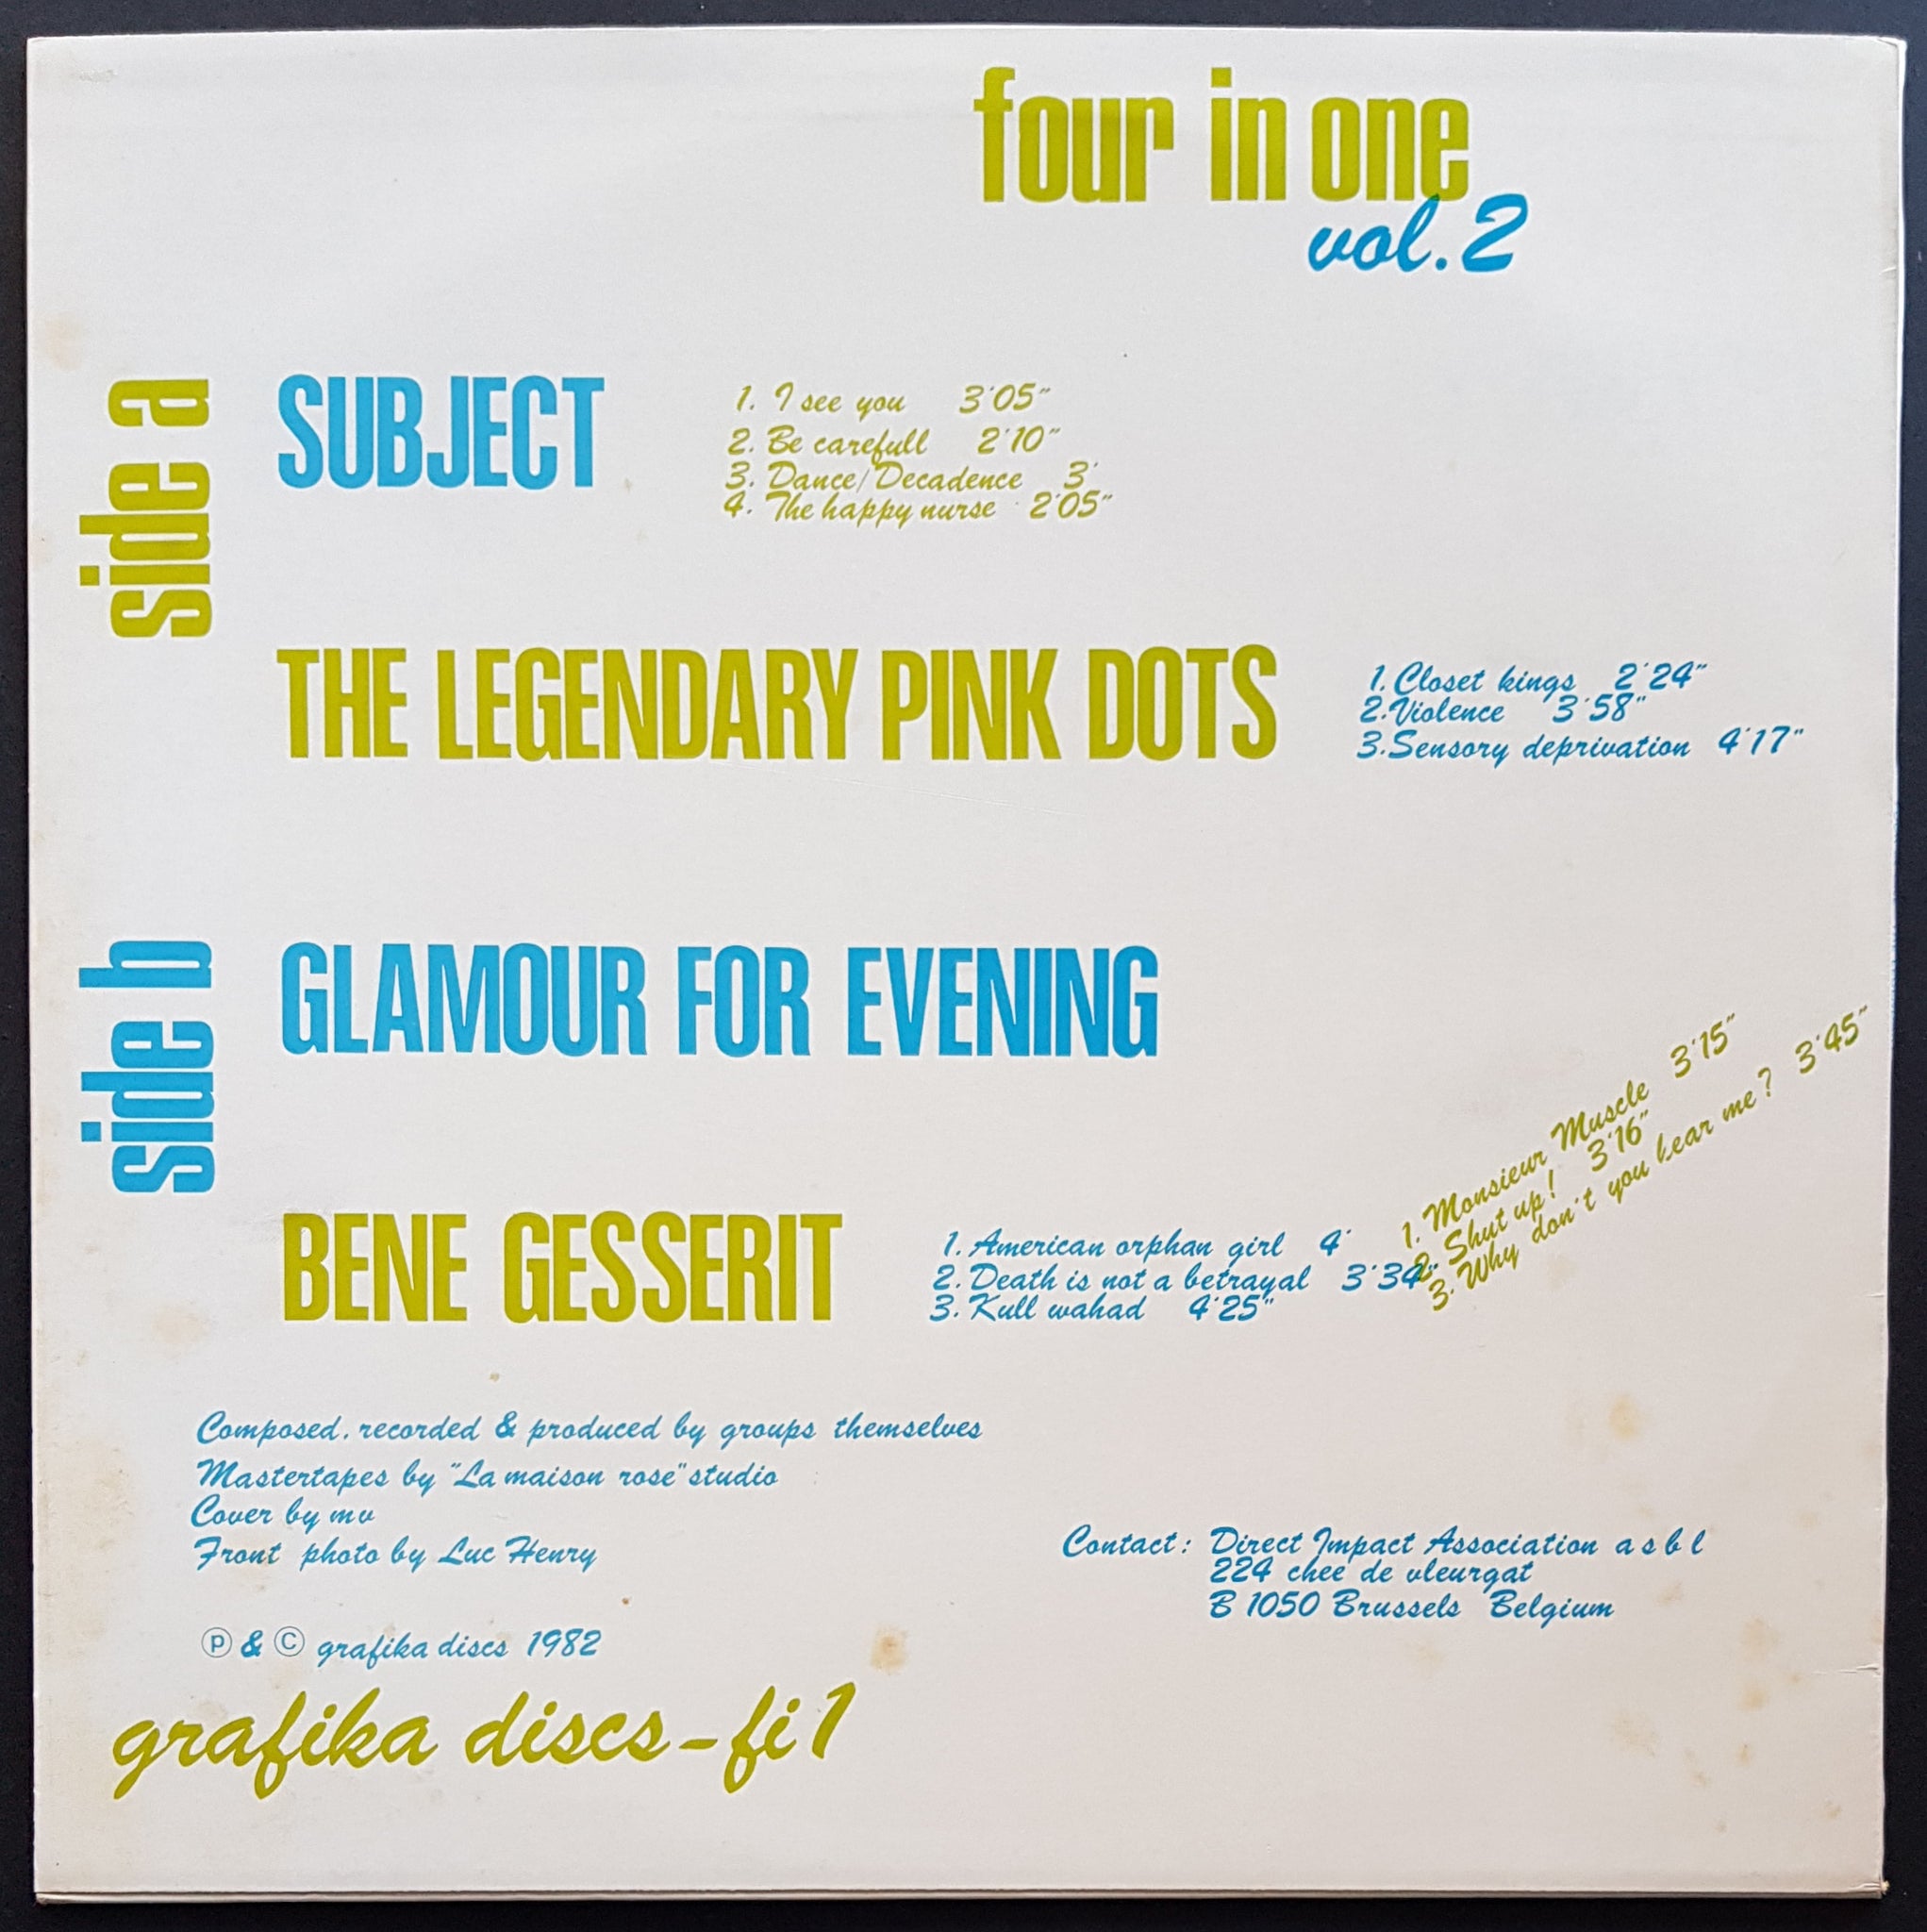 four in one
vol.2
side a
SUBJECT
1. I see you 3'05"
2. Be carefull 2'10"
3. Dance/Decadence 3'
4. The happy nurse 2'05"
THE LEGENDARY PINK DOTS
1. Closet kings 2'24"
2. Violence 3'58"
3. Sensory deprivation 4'17"
side b
GLAMOUR FOR EVENING
1. Monsieur Muscle 3'15"
2. Shut up! 3'16"
3. Why don't you hear me? 3'45"
BENE GESSERIT
1. American orphan girl 4'
2. Death is not a betrayal 3'34"
3. Kull wahad 4'25"
Composed. recorded & produced by groups themselves
Mastertapes by "La maison rose" studio
Cover by mv
Front photo by Luc Henry
Contact: Direct Impact Association a s b l
224 chee de vleurgat
B 1050 Brussels Belgium
℗ & © grafika discs 1982
grafika discs - fi 1